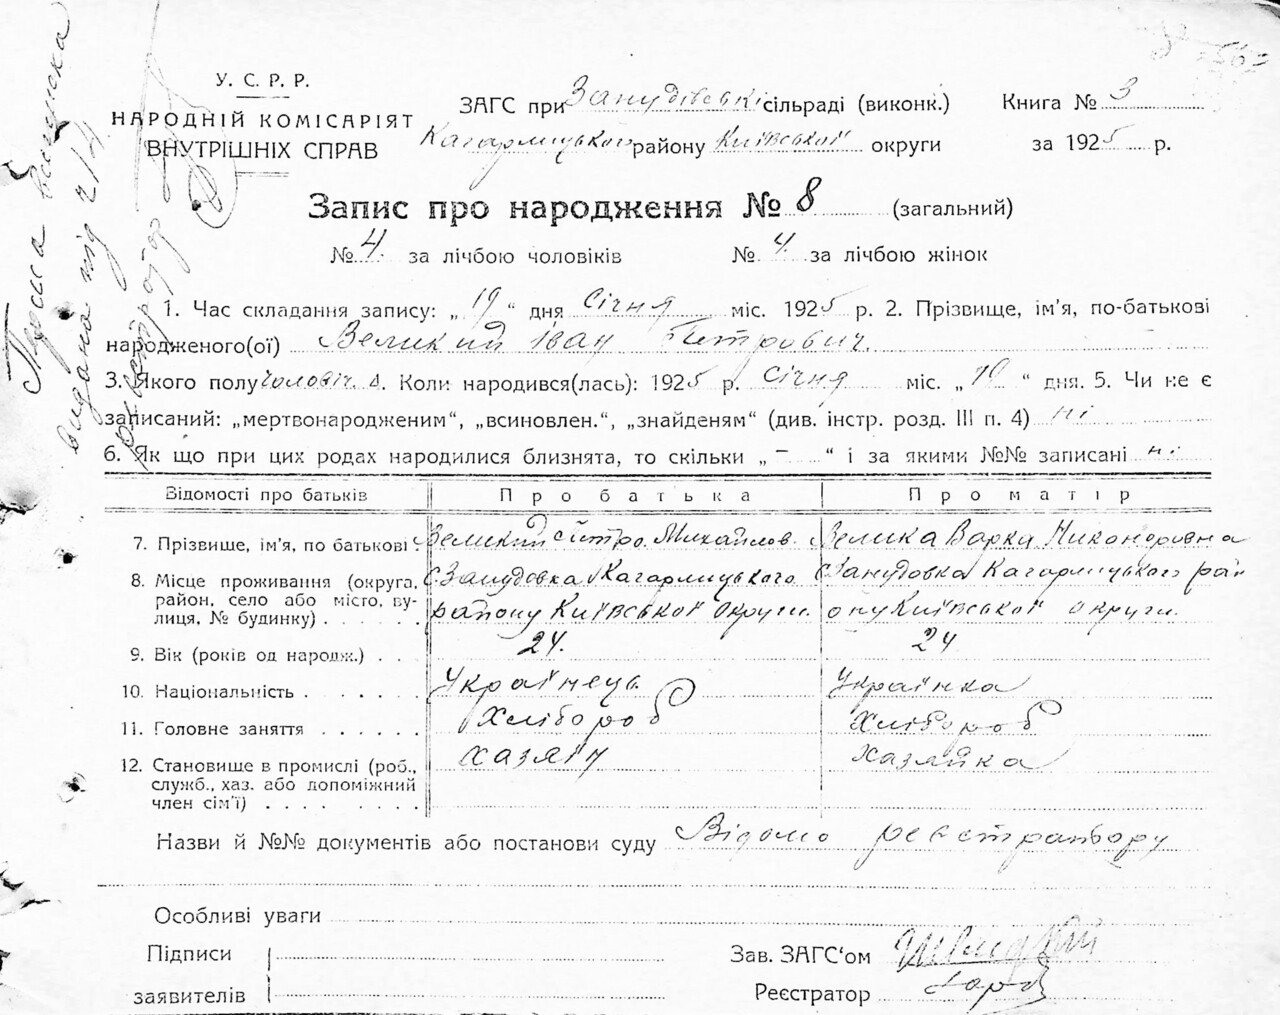 У. С. Р. Р.
НАРОДНІЙ КОМІСАРІЯТ
ВНУТРІШНІХ СПРАВ
ЗАГС при Занудівські сільраді (виконк.)
Кагарлицького району Київської округи
Книга № 3
за 1925 р.
Перша виписка
видана під 2/4
Реєстратор
Запис про народження № 8 (загальний)
№ 4 за лічбою чоловіків № 4 за лічбою жінок
1. Час складання запису: „ 19 “ дня Січня міс. 1925 р. 2. Прізвище, ім'я, по-батькові
народженого(ої) Великий Іван Питрович.
3. Якого полу чоловіч. 4. Коли народився(лась): 1925 р. Січня міс. „ 10 “ дня. 5. Чи не є
записаний: „мертвонародженим“, „всиновлен.“, „знайденям“ (див. інстр. розд. III п. 4) ні
6. Як що при цих родах народилися близнята, то скільки „ – “ і за якими №№ записані ні
Відомості про батьків Про батька Про матір
7. Прізвище, ім'я, по батькові . Великий Питро Михайлов. Велика Варка Никоноровна
8. Місце проживання (округа, с. Занудовка Кагарлицького с. Занудовка Кагарлицького рай
район, село або місто, ву- району Київської Округи. ону Київської округи.
лиця, № будинку) . . . . . .
9. Вік (років од народж.) . . . 24. 24
10. Національність . . . . . . Українець Українка
11. Головне заняття . . . . . . Хлібороб Хлібороб
12. Становище в промислі (роб., хазяїн хазяйка
служб., хаз. або допоміжний
член сім'ї) . . . . . . . .
Назви й №№ документів або постанови суду Відомо реєстратору
Особливі уваги
Підписи
заявителів
Зав. ЗАГС'ом
Реєстратор